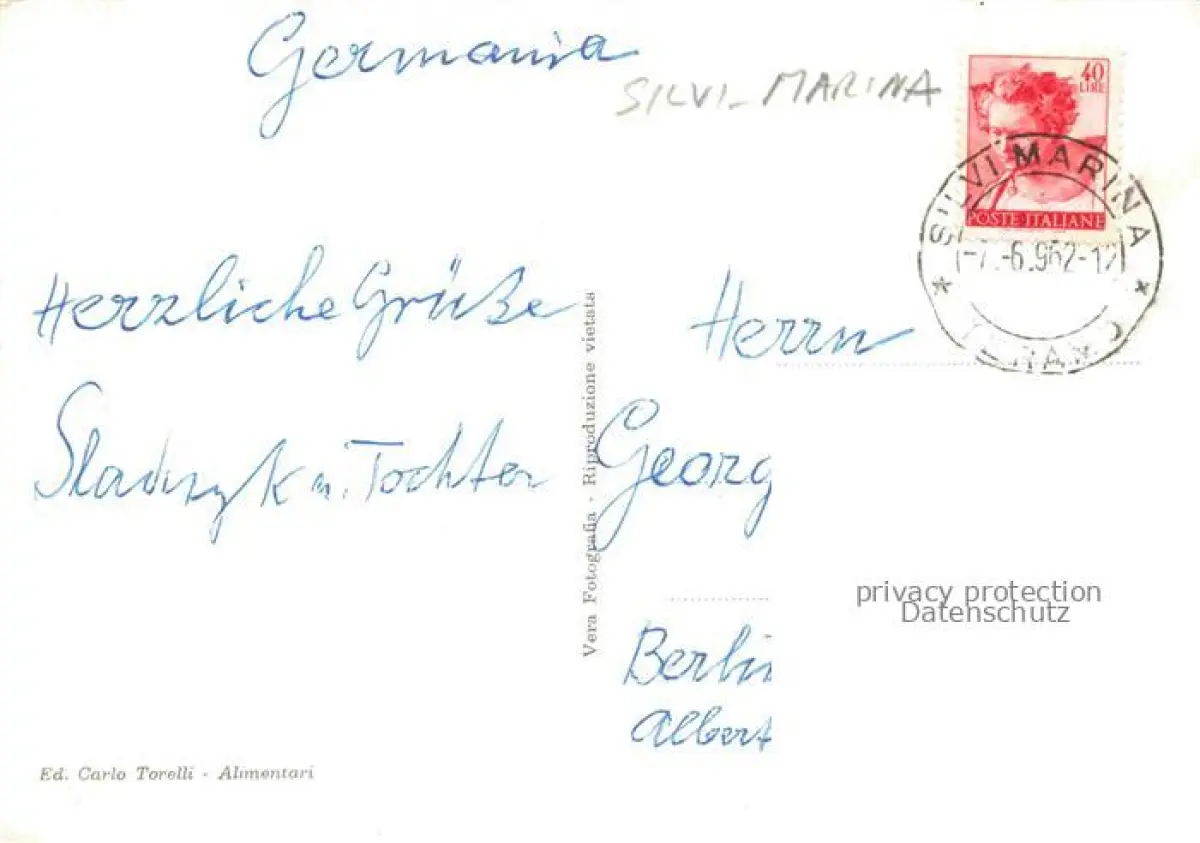 Germania
SILVI-MARINA
40
LIRE
POSTE ITALIANE
SILVI MARINA
-6.962-12
Herzliche Grüße
u. Tochter
Vera Fotografia - Riproduzione vietata
Herrn
Georg
privacy protection
Datenschutz
Berlin
Albert
Ed. Carlo Torelli - Alimentari